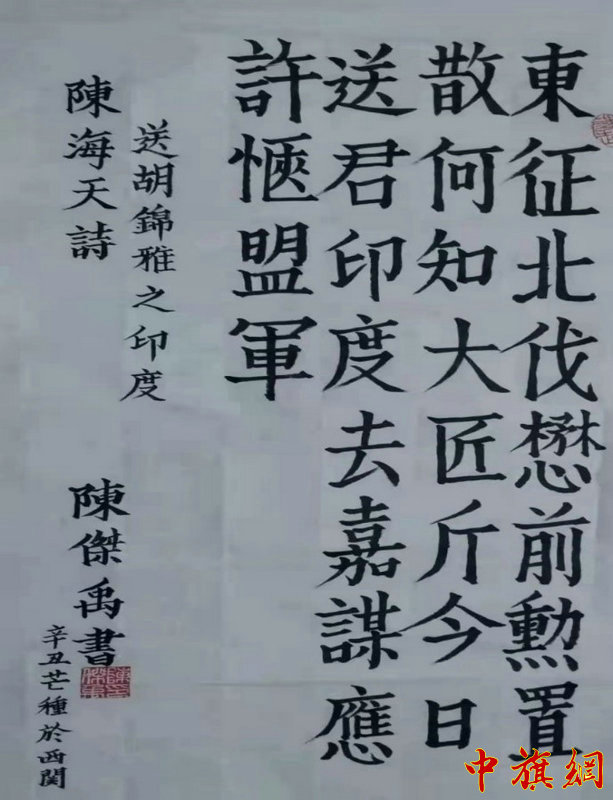 東征北伐懋前勲置
散何知大匠斤今日
送君印度去嘉謀應
許愜盟軍
送胡錦雅之印度
陳海天詩
陳傑禹書
辛丑芒種於西関
中旗網